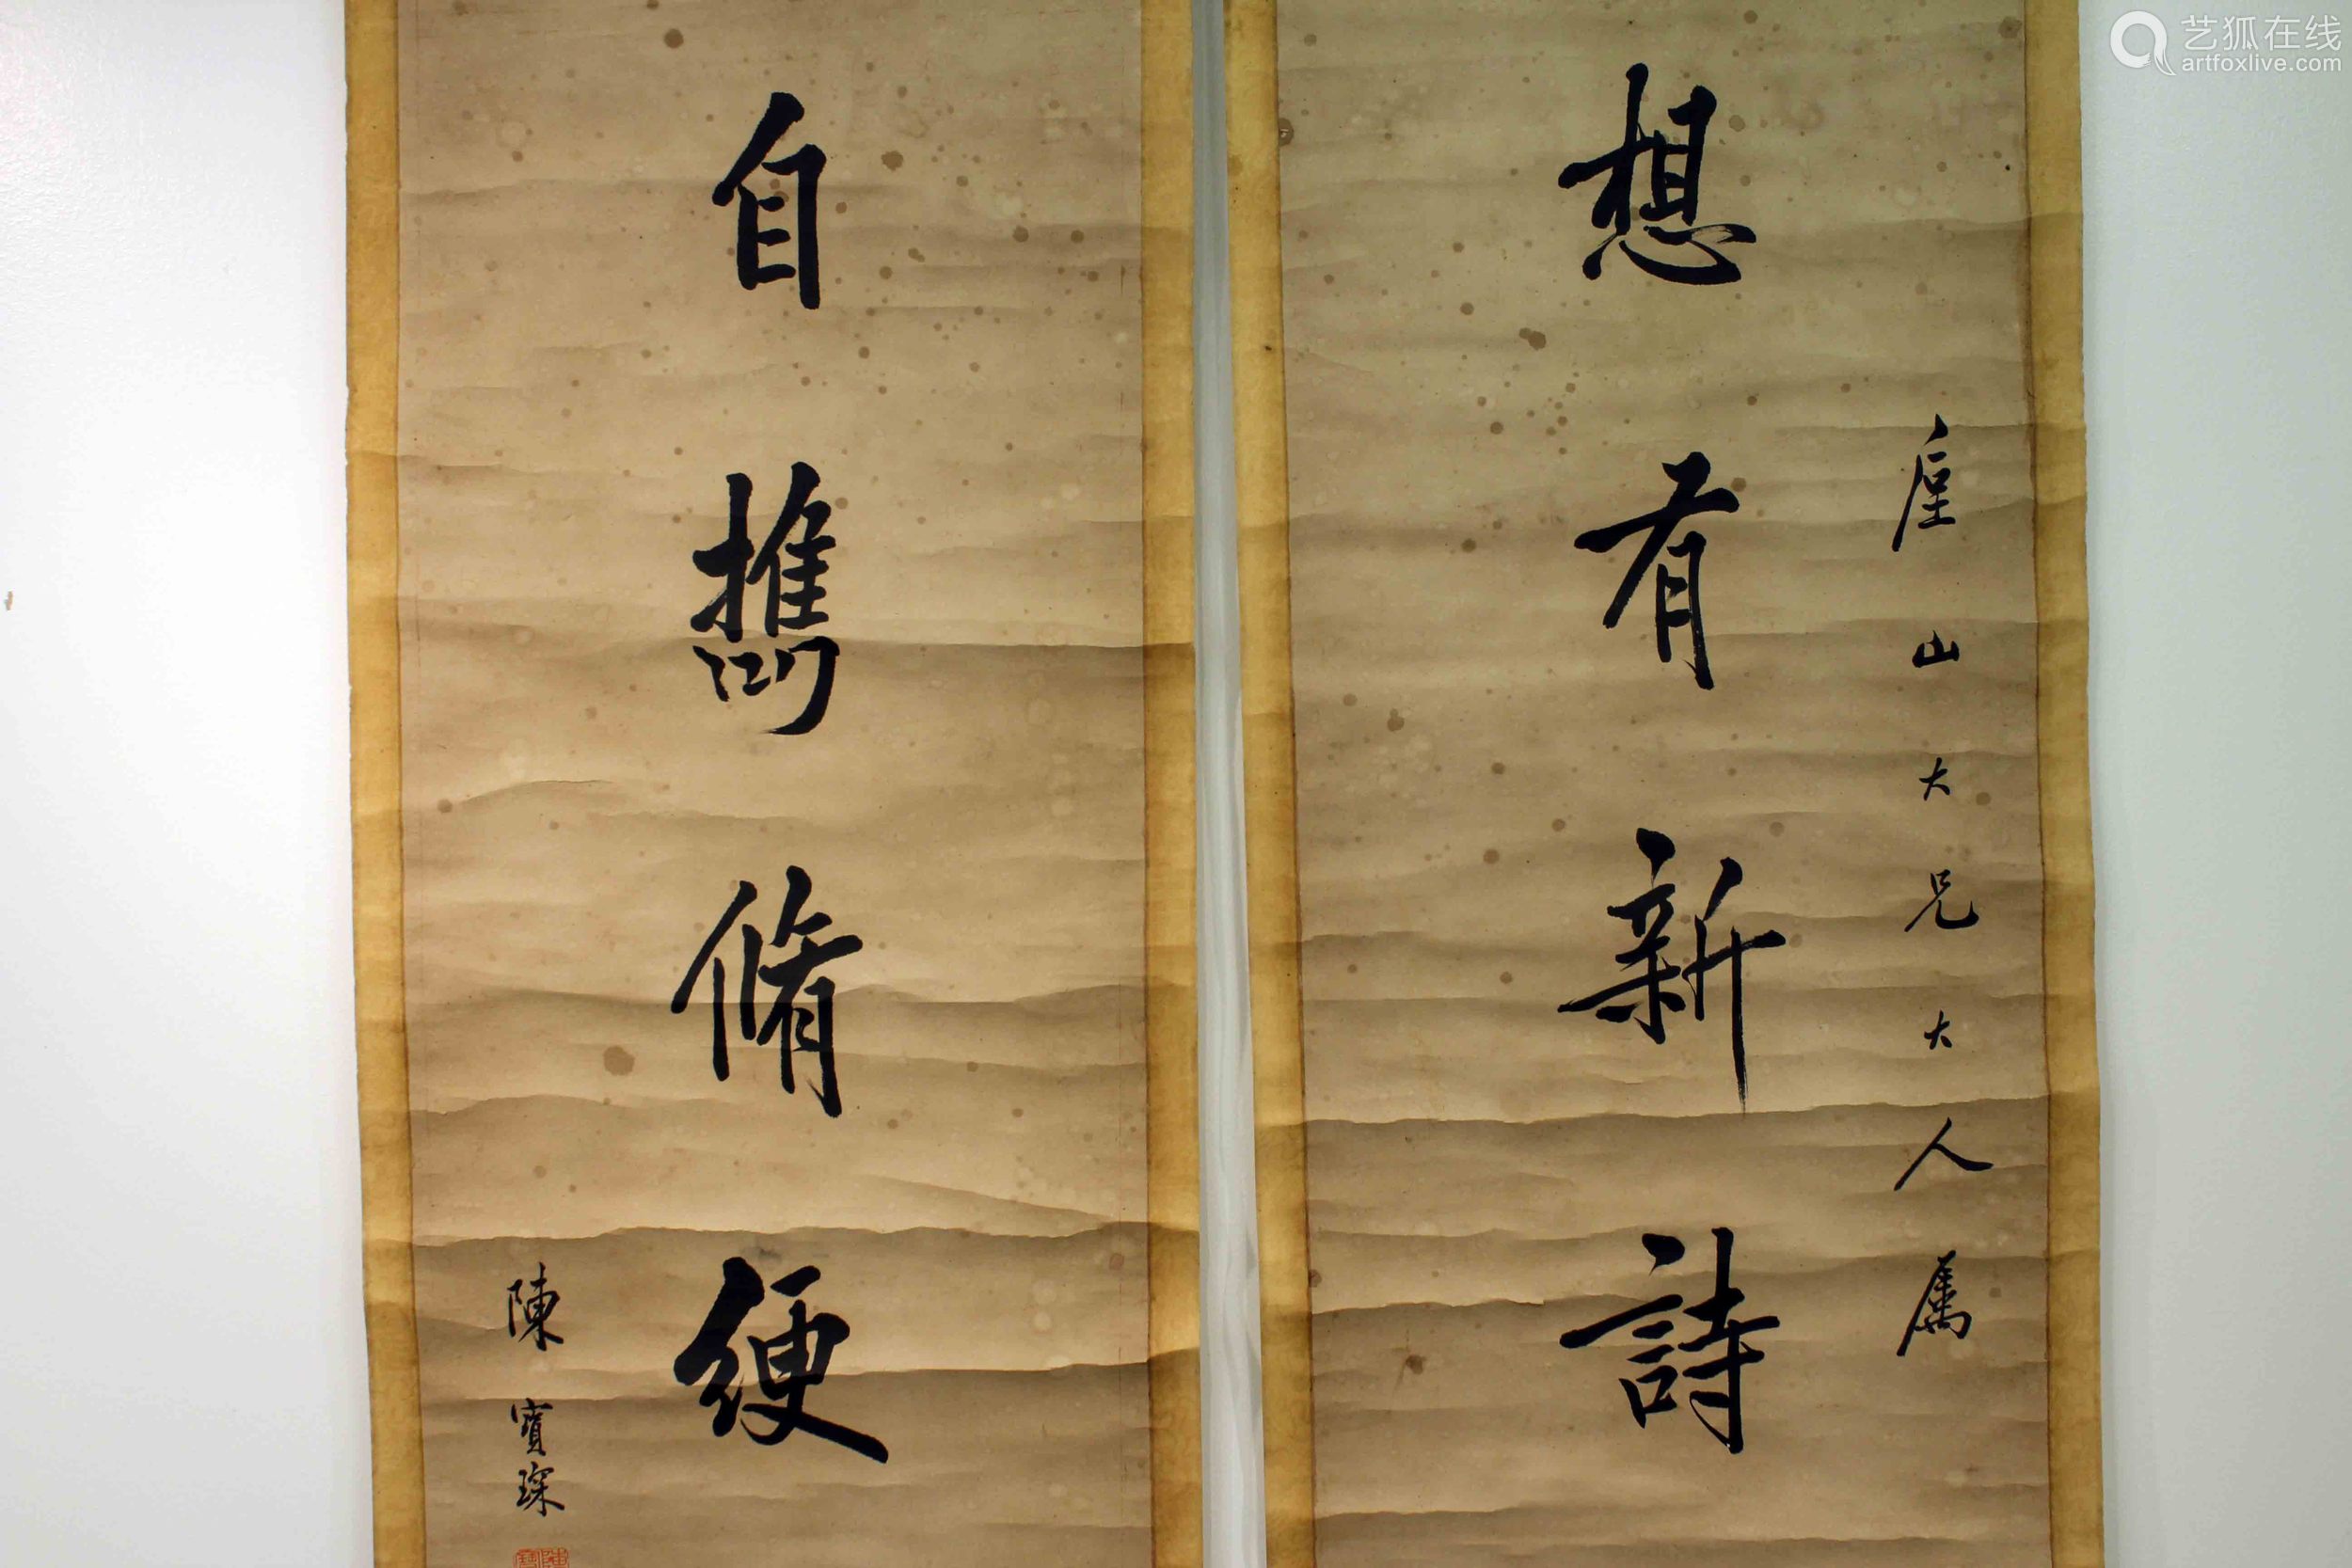 山大兄大人属
想有新詩
自攜脩綆
陳寶琛
艺狐在线
artfoxlive.com